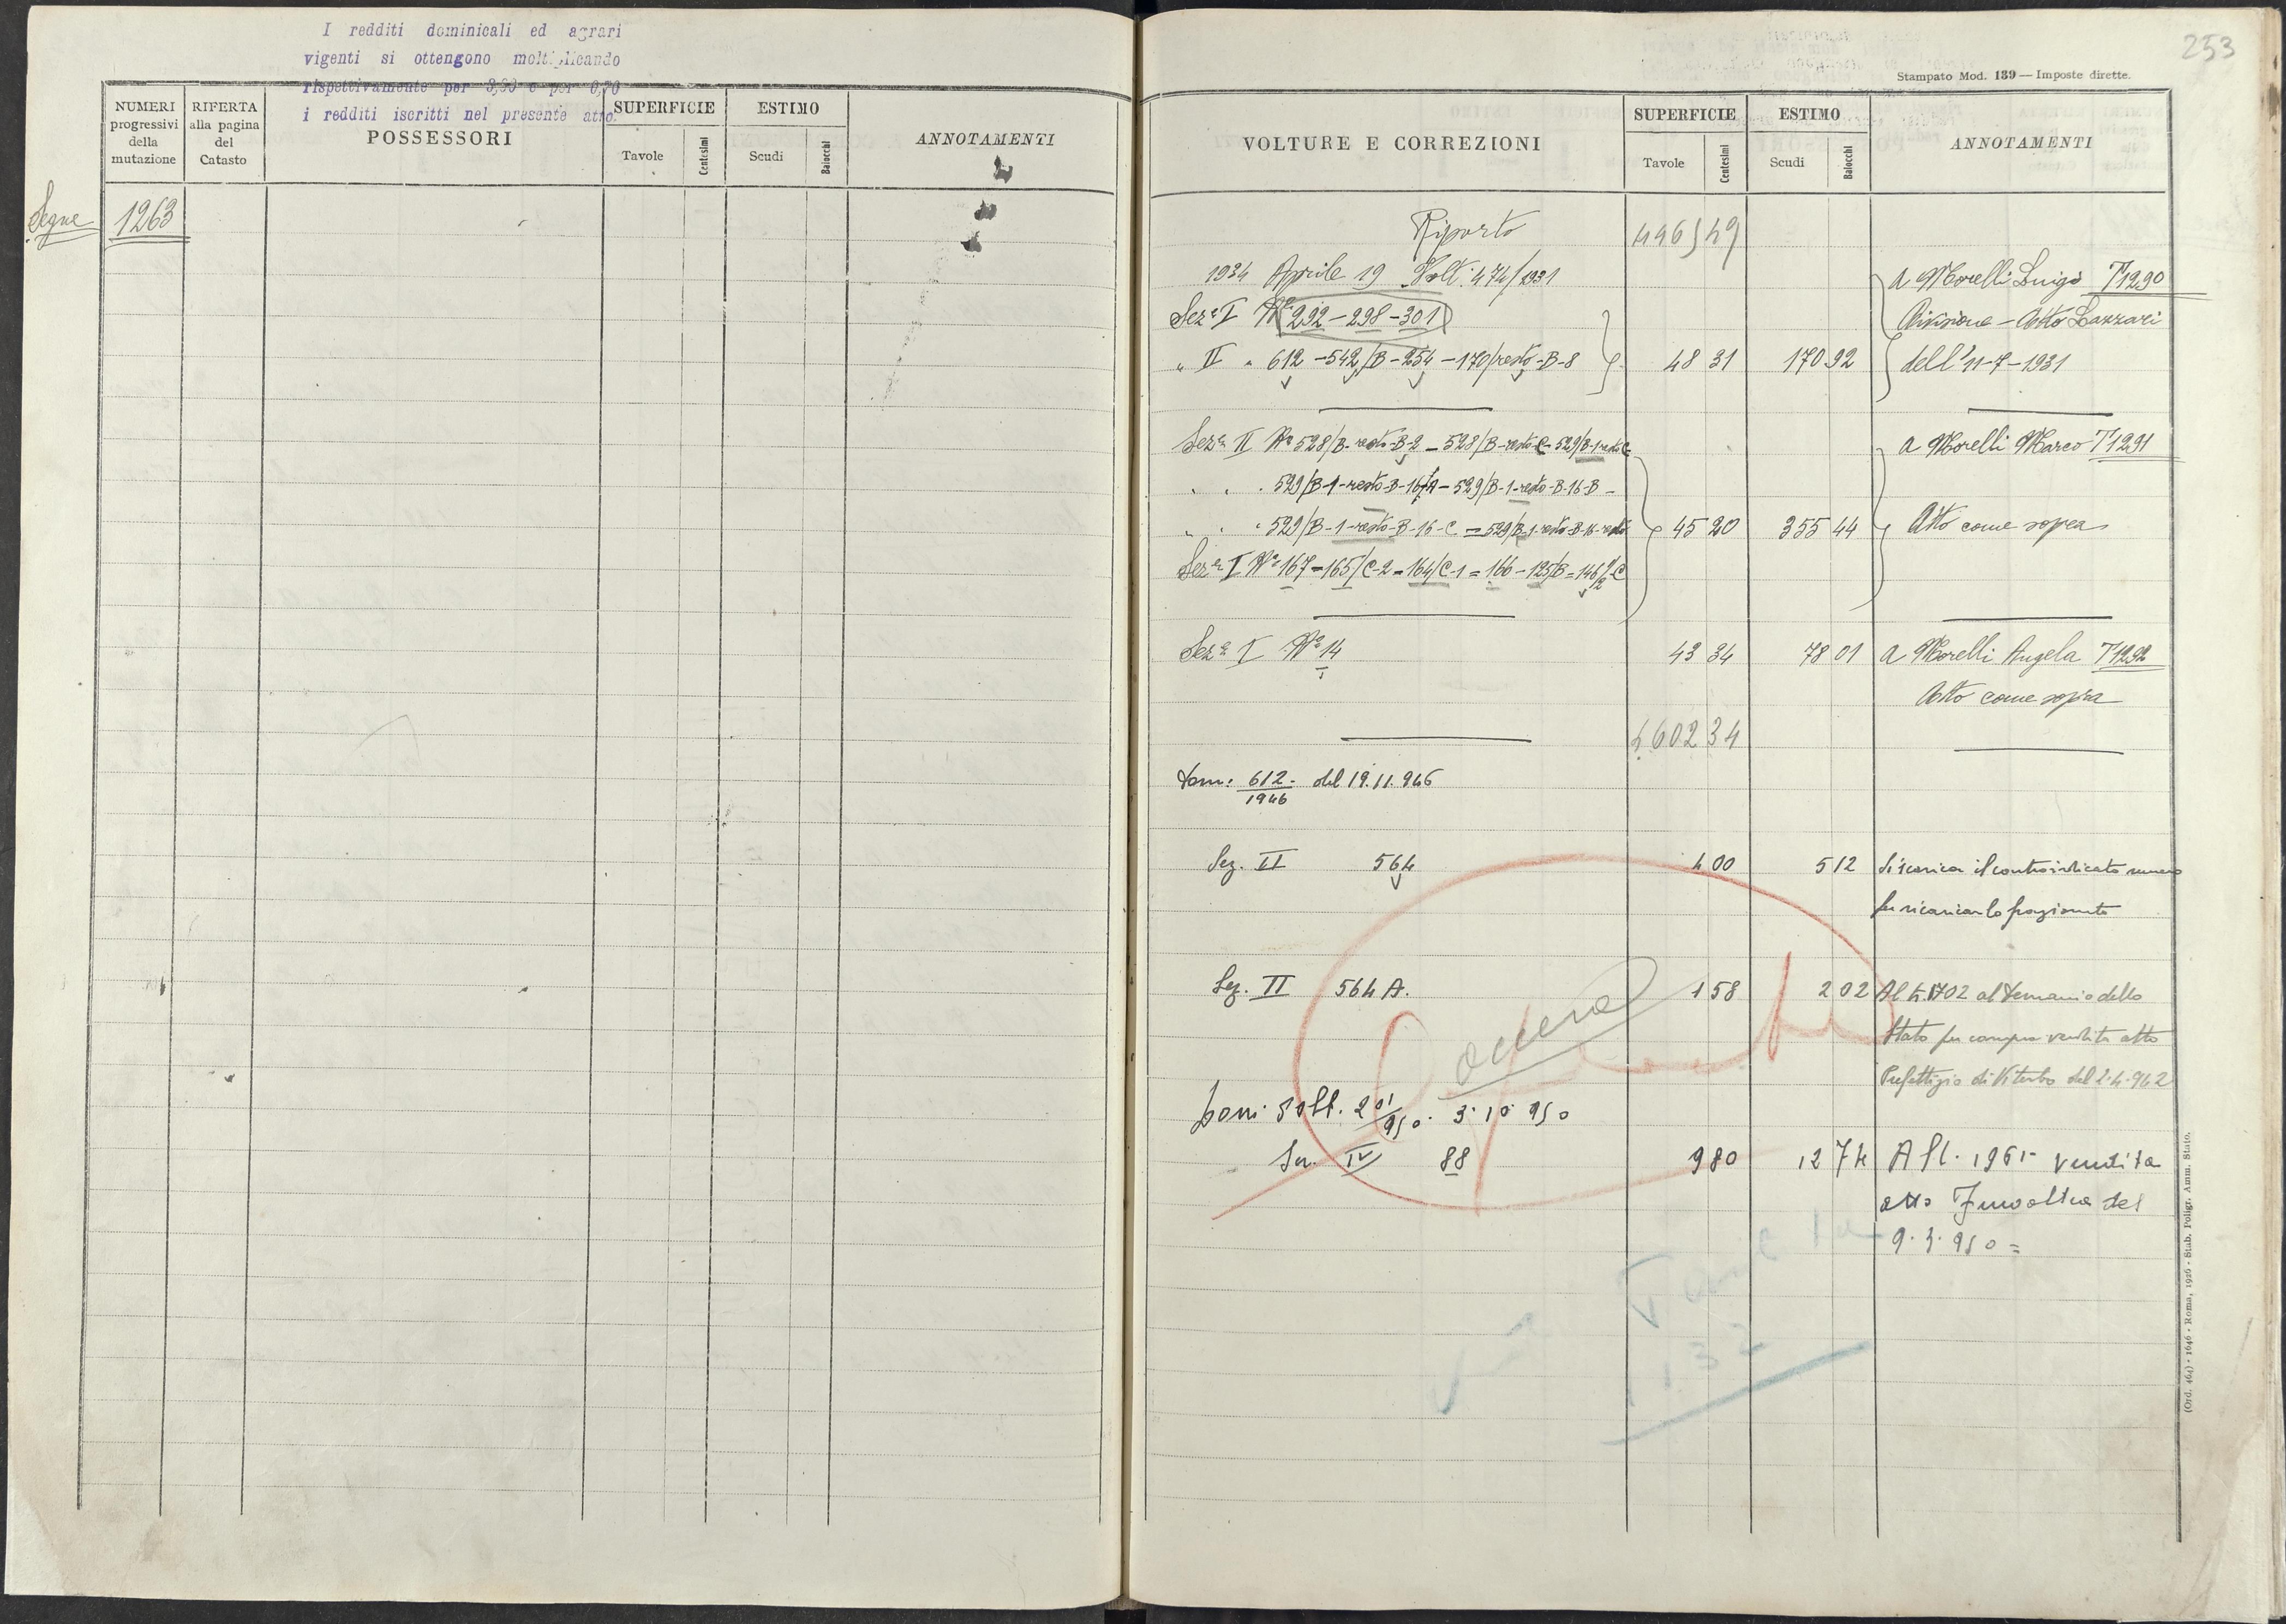 I redditi dominicali ed agrari
vigenti si ottengono moltiplicando
rispettivamente per 3,90 e per 0,70
i redditi iscritti nel presente atto.
NUMERI progressivi della mutazione
RIFERTA alla pagina del Catasto
POSSESSORI
SUPERFICIE
Tavole Centesimi
ESTIMO
Scudi Baiocchi
ANNOTAMENTI
Segue 1263
253
Stampato Mod. 139 — Imposte dirette.
VOLTURE E CORREZIONI
SUPERFICIE
Tavole Centesimi
ESTIMO
Scudi Baiocchi
ANNOTAMENTI
Riporto
1934 Aprile 19 Volt. 474/1931 a Morelli Luigi T1290
Sez.e I Ni 292-298-301 Divisione - Atto Lazzari
" II " 612-542/B-254-170/resto-B-8 48 31 170 92 dell'11-7-1931
Seze II No 528/B-resto-B-2-528/B-resto-C-529/B-1-resto C a Morelli Marco T1291
" " " 529/B-1-resto-B-16/A-529/B-1-resto-B-16-B-
" " " 529/B-1-resto-B-16-C=529/B-1-resto-B-16-resto 45 20 355 44 Atto come sopra
Seze I No 167=165/C-2=164/C-1=166-125/B=146/2-C
Seze I No 14 43 34 78 01 a Morelli Angela T1292
Atto come sopra
602 34
Dom: 612/1946 del 19.11.946
Sez. II 564 4 00 5 12 Si scarica il controindicato numero
per ricaricarlo frazionato
Sez. II 564 A. 1 58 2 02 Al t. 1702 al Demanio dello
Stato per compra vendita atto
Prefettizio di Viterbo del 2.4.942
Dom. Volt. 201/950. 3.10.950
Sez. IV 88 9 80 12 74 Al t. vendita
atto del
9.3.950=
(Ord. 464) - 1646 - Roma, 1926 - Stab. Poligr. Amm. Stato.